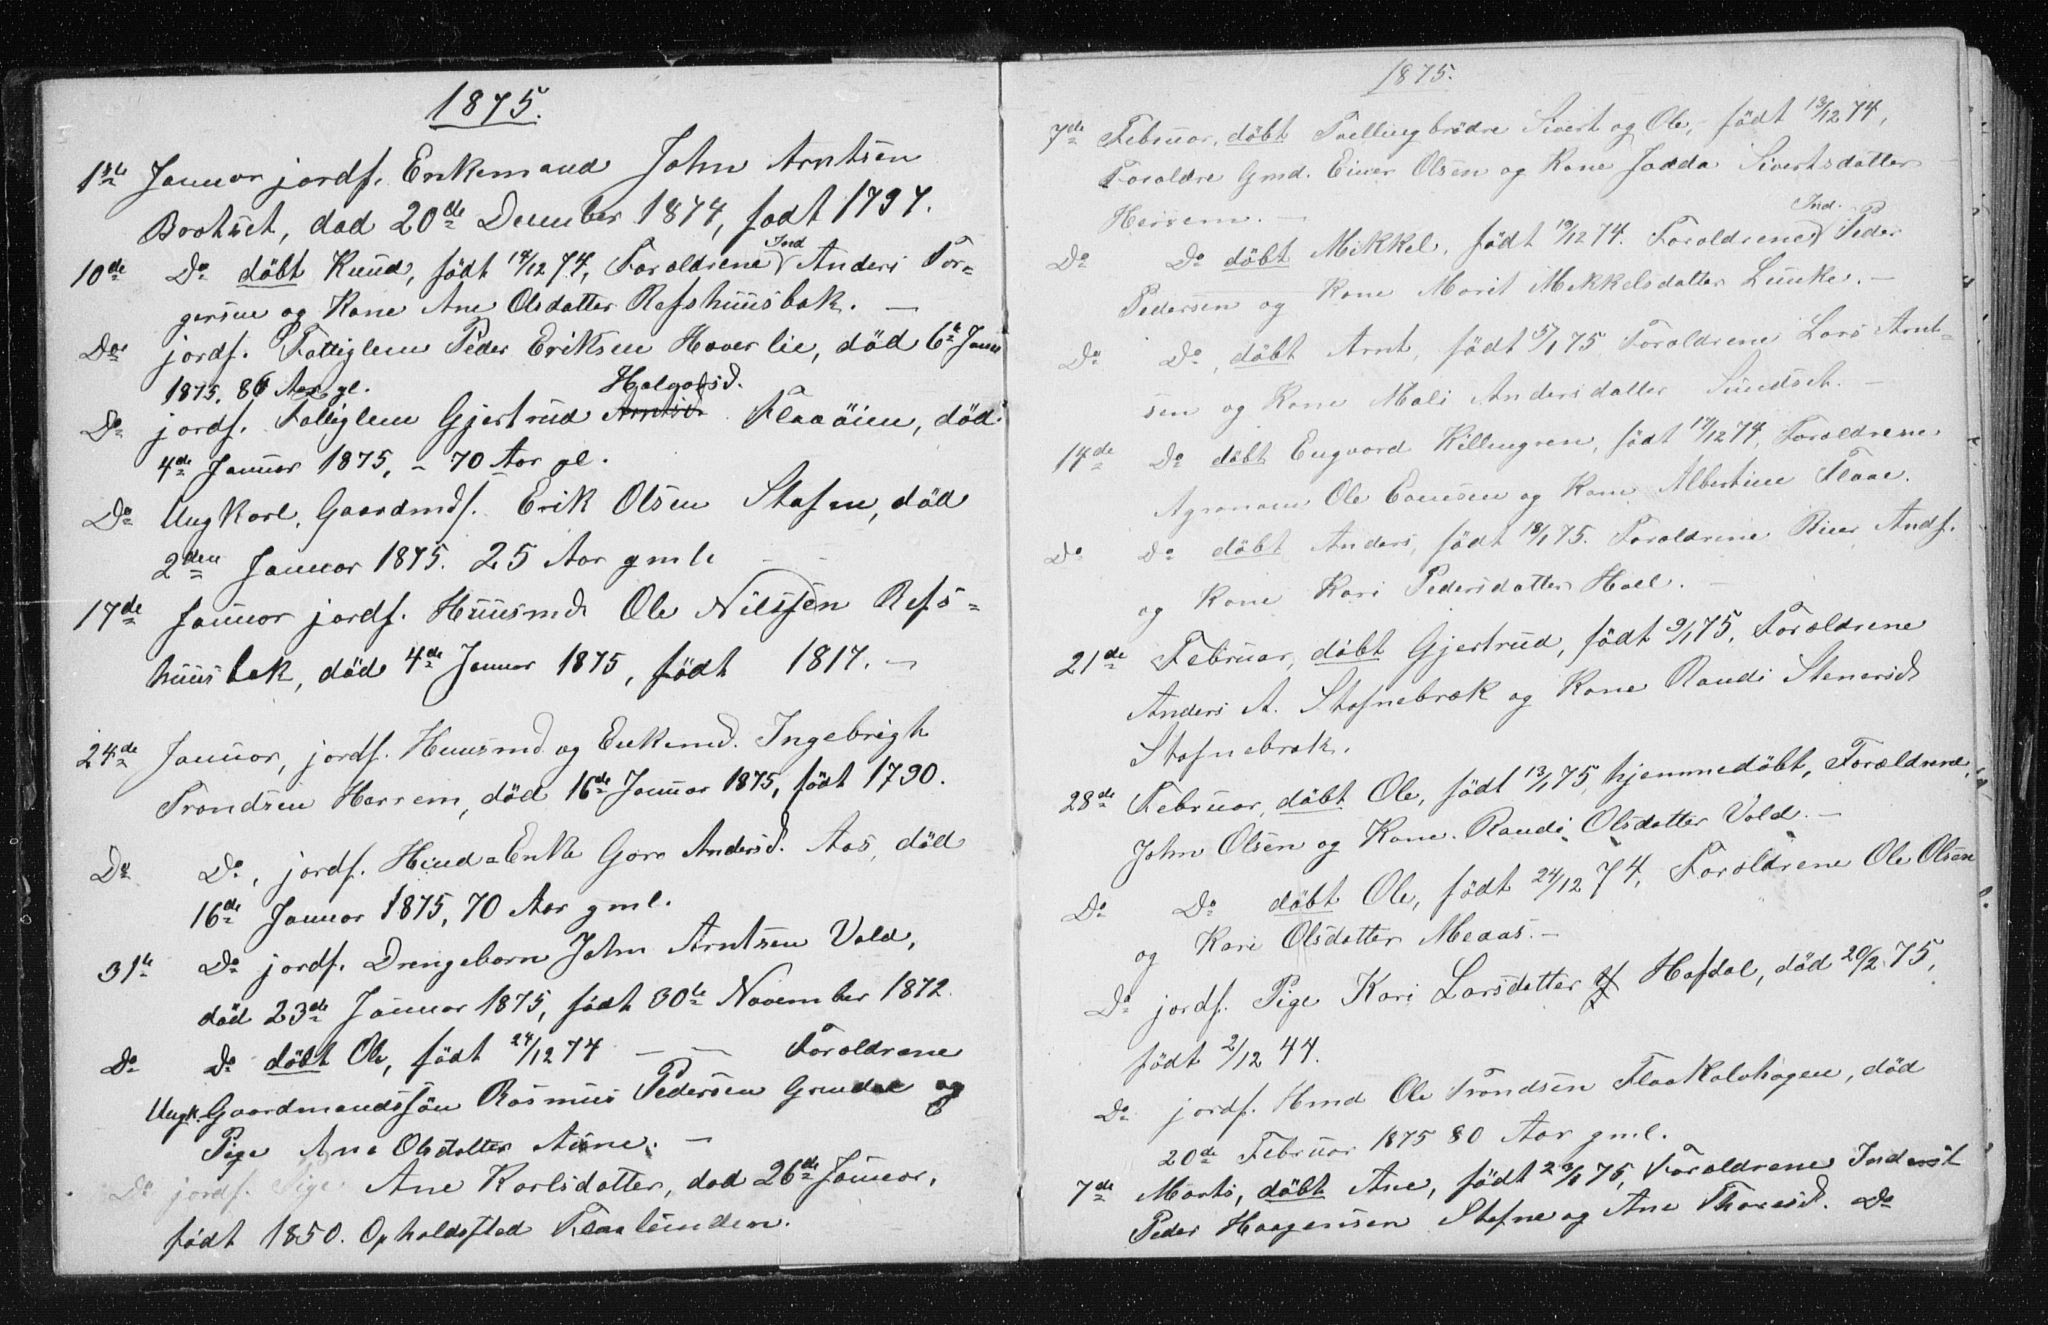 1875.
1ste Januar jordf. Enkemand John Arntsen
Brotset, död 20de December 1874, födt 1797.
10de Do döbt Knud, födt 14/12 74, Forældrene Ind Anders Tor-
gersen og Kone Ane Olsdatter Refshuusbak. —
Do jordf. Fattiglem Peder Eriksen Haverlie, död 6te Janu
1875, 86 Aar gl.
Halvorsd.
Do jordf. Fattiglem Gjertrud Arntsd. Flaaöien, död
4de Januar 1875, - 70 Aar gl.
Do Ungkarl, Gaardmds. Erik Olsen Stafne, död
2den Januar 1875. 25 Aar gmle
17de Januar jordf. Huusmd. Ole Nilssen Refs-
huusbak, död 4de Januar 1875, födt 1817. —
24de Januar, jordf. Huusmd. og Enkemd. Ingebrigt
Trondsen Herrem, död 16de Januar 1875, födt 1790.
Do Do, jordf. Huusd-Enke Goro Andersd. Aas, död
16de Januar 1875, 70 Aar gml.
31te Do jordf. Drengebarn John Arntsen Vold,
död 23de Januar 1875, födt 30te November 1872.
Do Do döbt Ole, födt 24/12 74 — — Forældrene
Ungk. Gaardmandssön Rasmus Pedersen Grindal og
Pige Ane Olsdatter Aune. —
Do jordf. Pige Ane Karlsdatter, död 26de Januar,
födt 1850. Opholdssted Flaalunden.
1875.
7de Februar, döbt Tvellingbrödre Sivert og Ole, födt 13/12 74,
Forældre Gmd. Einer Olsen og Kone Jodda Sivertsdatter
Herrem. —
Do Do döbt Mikkel, födt 19/12 74. Forældrene Ind. Peder
Pedersen og Kone Marit Mekkelsdatter Lunke. —
Do Do, döbt Arnt, födt 5/1 75 Forældrene Lars Arnt-
sen og Kone Mali Andersdatter Sundset. —
14de Do döbt Engvard Killingren, födt 17/12 74, Forældrene
Agronom Ole Evensen og Kone Albertine Flaae.
Do Do döbt Anders, födt 18/1 75. Forældrene Riner Andf.
og Kone Kari Pedersdatter Hoel. —
21de Februar, döbt Gjertrud, födt 9/1 75, Forældrene
Anders A. Stafnebrak og Kone Randi Stenersd
Stafnebrak.
28de Februar, döbt Ole, födt 13/1 75, hjemmedöbt, Forældrene,
John Olsen og Kone Randi Olsdatter Vold. —
Do Do döbt Ole, födt 24/12 74, Forældrene Ole Olsen
og Kari Olsdatter Meaas. —
Do jordf. Pige Kari Larsdatter Hafdal, död 20/2 75,
födt 2/12 44.
Do jordf. Hmd Ole Trondsen Flaakalvhagen, död
20de Februar 1875 80 Aar gml.
7de Marts, döbt Ane, födt 29/1 75, Forældrene Inderst
Peder Haagensen Stafne og Ane Thoresd. Do